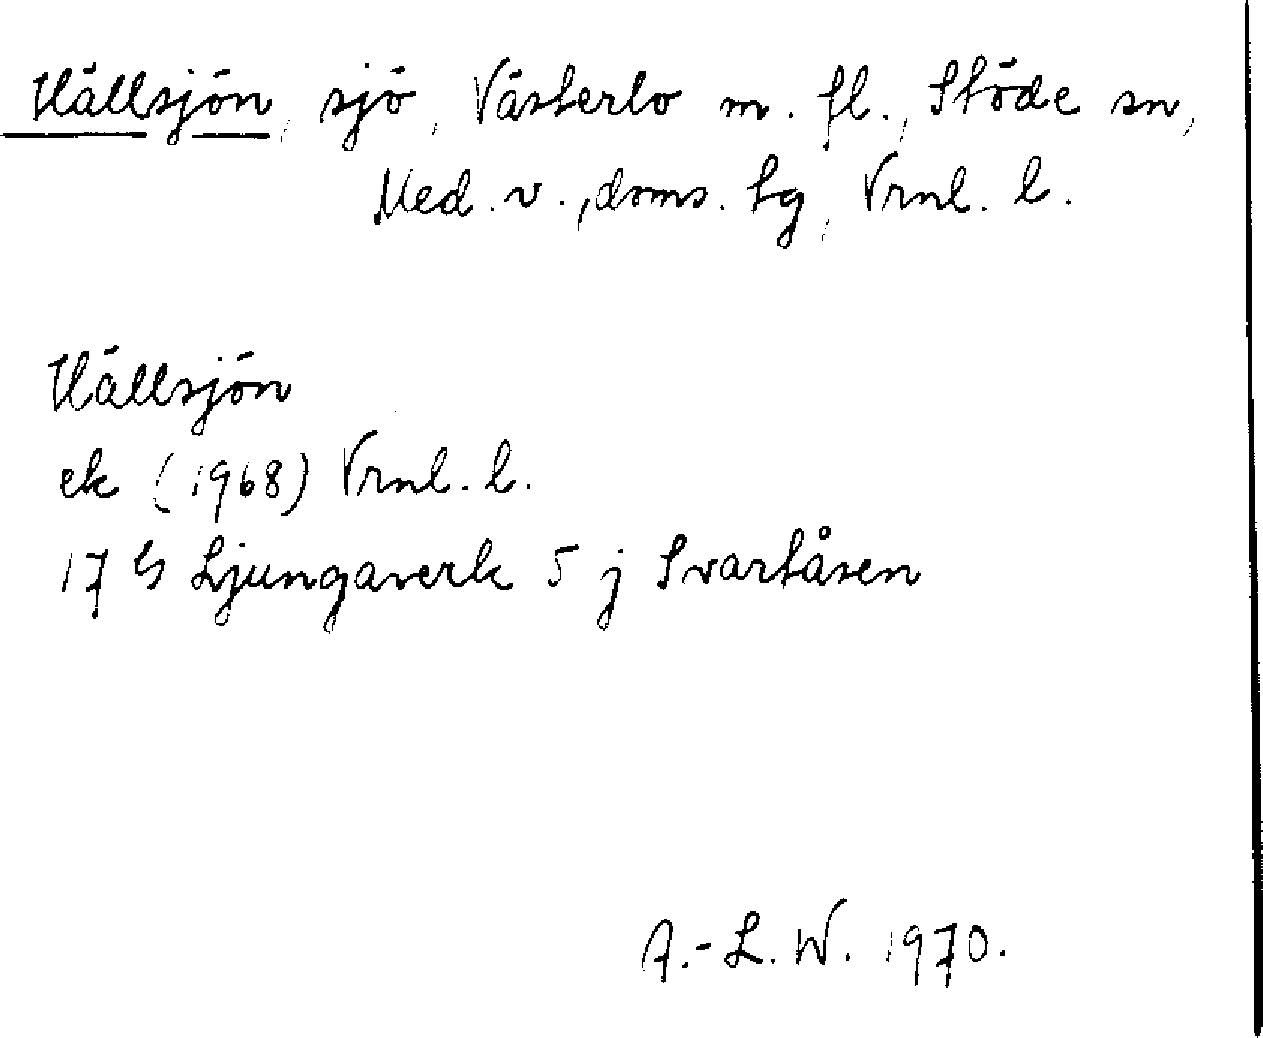 Hällsjön, sjö, Västerlo m. fl., Stöde sn,
Med. v., doms. lg, Vrnl. l.
Hällsjön
ek (1968) Vrnl. l.
17 G Ljungaverk 5 j Svartåsen
A.-L. W. 1970.